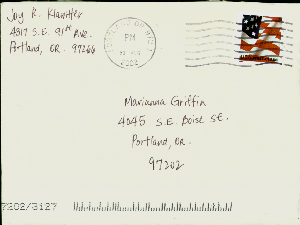 Jay R. Klawitter
4817 S.E. 91st Ave.
Portland, OR. 97266
PORTLAND OR
PM
2002
Marianna Griffin
4045 S.E. Boise St.
Portland, OR.
97202
7202/3127